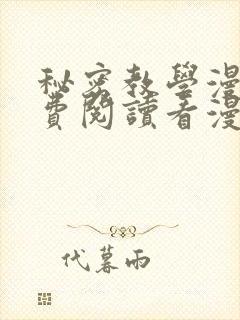 秘密教學漫
費閱讀看漫
代暮雨